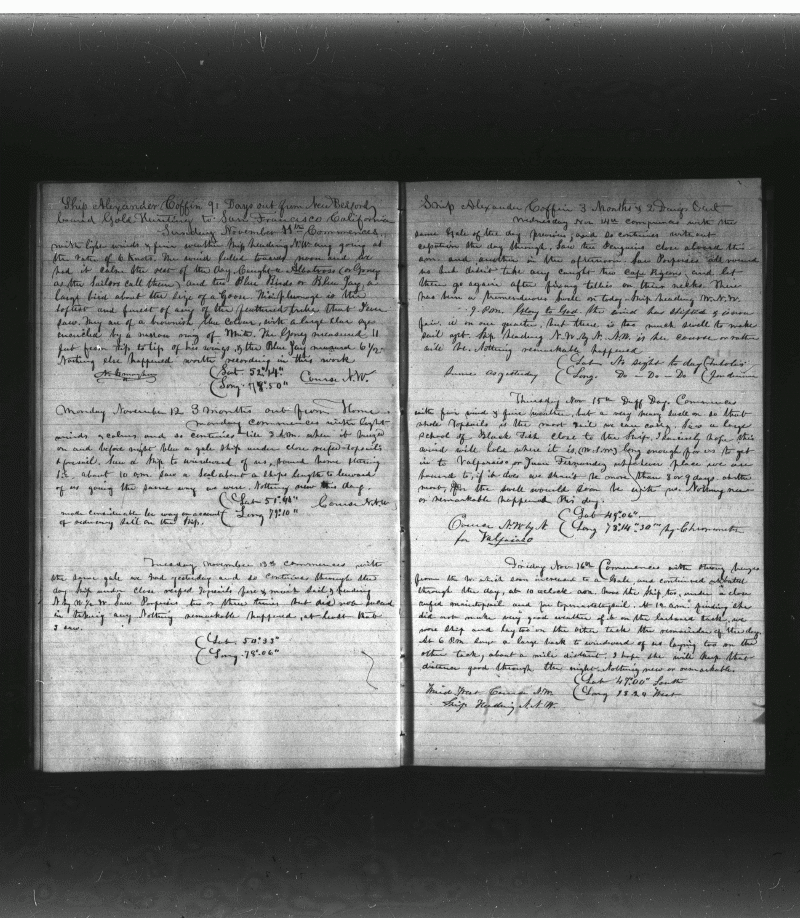 Ship Alexander Coffin 91 Days out from New Bedford
bound Gold Hunting to San Francisco California
Sunday November 11th Commences,
with light winds & fine weather Ship heading N.W. any going at
the rate of 6 knots. The wind failed towards noon and we
had it calm the rest of the day. Caught a Albatross (or Goney
as the Sailors call them) and two Blue Birds or Blue Jay, a
large bird about the size of a Goose. His plumage is the
softest and finest of any of the feathered tribe that I ever
saw. They are of a brownish blue colour, with a large blue eye
encircled by a narrow ring of White. The Goney measured 11
feet from tip to tip of his wings, & the Blue Jay measured 6 1/2.
Nothing else happened worth recording in this work
Lat 52°14"
Long. 78°50" Course N.W.
Monday November 12 3 months out from Home
Monday commences with light
winds & calms and so continues till 3 P.M. when it breezed
on and before night blew a gale Ship under close reefed topsails
& foresail. Saw a Ship to windward of us, bound home steering
S.E. about 10 a.m. Saw a Seal about a ships length to leeward
of us going the same way as we were. Nothing new this day.
Lat 51°44" Course N.N.W.
Long 79°10"
made considerable lee way on account
of reducing sail on the Ship.
Tuesday November 13th commences with
the same gale we had yesterday and so continues through the
day Ship under close reefed Topsails fore & main sail & heading
N. by W. 1/2 W. Saw Porpoises two or three times but did not succeed
in taking any. Nothing remarkable happened, at least that
I saw.
Lat. 50°.33"
Long. 78°.06"
Ship Alexander Coffin 3 Months & 2 Days Out
Wednesday Nov 14th commences with the
same Gale of the day previous, and so continues with out
exception the day through. Saw two Penguins close aboard this
a.m. and another in the afternoon. Saw Porpoises all round
us but didn't take any. Caught two Cape Pigeons and let
them go again after fixing tallies on their necks. There
has been a tremendous swell on today. Ship heading W.N.W.
9 P.M. Glory to God. The wind has shifted & is now
fair. is on our quarter, but there is too much swell to make
sail yet. Ship heading N.W. by N. N.W. is her course or rather
will be. Nothing remarkable happened
Lat - No sight to day
Same as yesterday Long. Do - Do - Do
Thursday Nov 15th Duff Day. Commences
with fair wind & fine weather, but a very heavy swell on so that
whole Topsails is the most sail we can carry. Saw a large
School of Black Fish close to the Ship. I sincerely hope this
wind will hold where it is, (W.S.W.) long enough for us to get
in to Valparaiso or Juan Fernandez whichever place we are
bound to, if it does we shan't be more than 8 or 9 days at the
most, for the swell would soon be with us. Nothing new
or remarkable happened this day.
Lat 49°06"
Course N.W. by N Long 78°.14".30''' by Chronometer
for Valparaiso
Friday Nov. 16th Commences with strong breezes
from the W. which soon increased to a Gale, and continued
through the day, at 10 oclock a.m. hove the Ship to, under a close
reefed maintopsail and fore topmaststaysail. At 12 a.m. finding she
did not make very good weather of it on the larboard tack, we
wore Ship and lay too on the other tack the remainder of the day.
At 6 P.M. saw a large bark to windward of us laying too on the
other tack, about a mile distant. I hope she will keep that
distance good through the night. Nothing new or remarkable.
Lat 47°.00" South
Wind West Course N.W. Long 78.24 West
Ship Heading N.N.W.